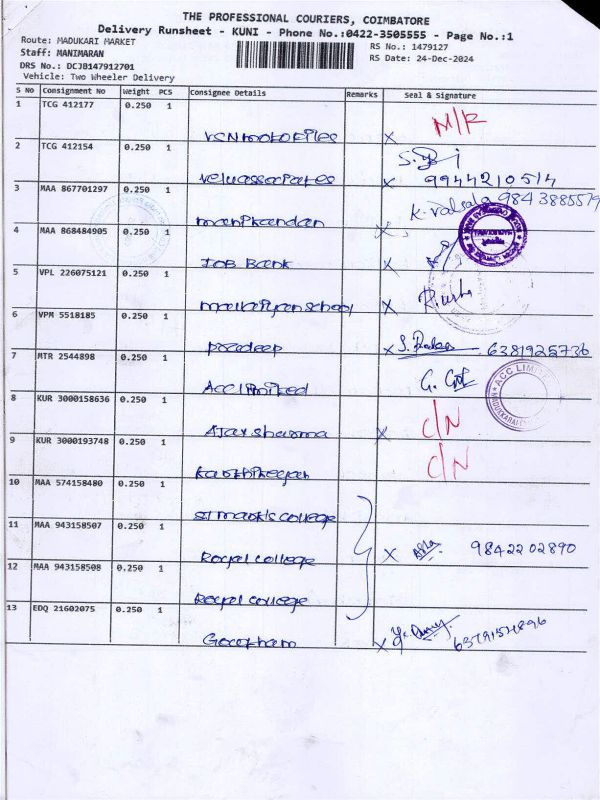 THE PROFESSIONAL COURIERS, COIMBATORE
Delivery Runsheet - KUNI - Phone No.:0422-3505555 - Page No.:1
Route: MADUKARI MARKET RS No.: 1479127
Staff: MANIMARAN RS Date: 24-Dec-2024
DRS No.: DCJB147912701
Vehicle: Two Wheeler Delivery
S No Consignment No Weight PCS Consignee Details Remarks Seal & Signature
1 TCG 412177 0.250 1 M/R
2 TCG 412154 0.250 1 velu associates x 9944210514
3 MAA 867701297 0.250 1 manikandan K. Valsala 9843885579
4 MAA 868484905 0.250 1 IOB Bank x
5 VPL 226075121 0.250 1 school x
6 VPM 5518185 0.250 1 pradeep x 6381925736
7 MTR 2544898 0.250 1 Acc limited ACC LIMITED
8 KUR 3000158636 0.250 1 Ajay sharma x C/N
9 KUR 3000193748 0.250 1 karthikeyan C/N
10 MAA 574158480 0.250 1 st mark's college
11 MAA 943158507 0.250 1 Royal college x 9842202890
12 MAA 943158508 0.250 1 Royal college
13 EDQ 21602075 0.250 1 Gowtham x